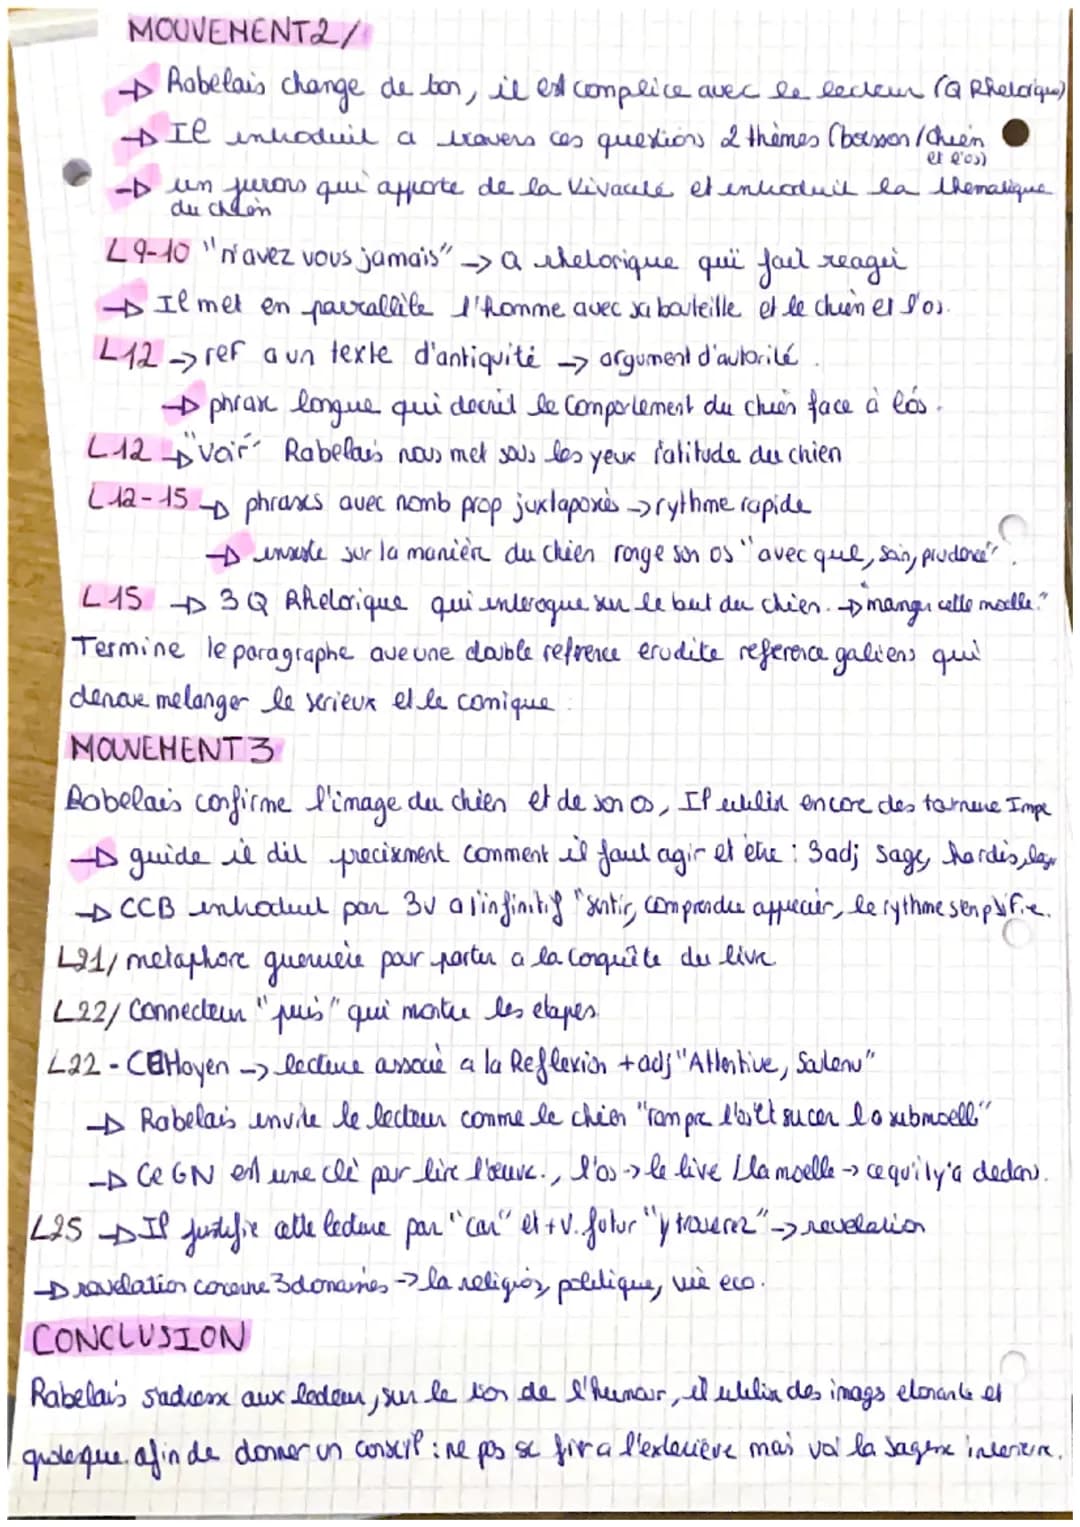 MOUVEMENT 2/
→ Rabelais change de ton, il est complice avec le lecteur (Q Rhetorique)
→ Il introduit a travers ces questions 2 thèmes (boisson/chien et l'os)
→ un jurons qui apporte de la vivacité et introduit la thematique du chien
L9-10 "n'avez vous jamais" → Q rhetorique qui fait reagir
→ Il met en parrallèle l'homme avec sa bouteille et le chien et l'os.
L12 → ref a un texte d'antiquité → argument d'autorité.
→ phrase longue qui decrit le comportement du chien face à l'os.
L12 → "voir" Rabelais nous met sous les yeux l'atitude du chien
L12-15 → phrases avec nomb prop juxtaposés → rythme rapide
→ insiste sur la manière du chien ronge son os "avec que, soin, prudence".
L15 → 3 Q Rhetorique qui interoque sur le but du chien. → "manger cette moelle."
Termine le paragraphe ave une double refrence erudite reference galiens qui
melanger le serieux et le comique.
MOUVEMENT 3
Rabelais confirme l'image du chien et de son os, Il utilise encore des Impe
→ guide il dit precisment comment il faut agir et être : 3adj sage, hardis,
→ CCB introduit par 3v a l'infinitif "sentir, comprendre, le rythme
L21/ metaphore guerrière pour partir a la conquête du livre
L22/ Connecteur "puis" qui montre les etapes.
L22 - CCMoyen → lecture associé a la Reflexion + adj "Attentive,
→ Rabelais invite le lecteur comme le chien "rompre l'os et sucer la submoell"
→ Ce GN est une clé par lire l'œuvre., l'os → le livre / la moelle → ce qu'il y'a dedans.
L25 → Il justifie cette lecture par "car" et + v. futur "y trouverez" → revelation
→ revelation concerne 3 domaines → la religion, politique, vie eco.
CONCLUSION
Rabelais s'adresse aux lecteur, sur le ton de l'humour, il utilise des images etonante et
grotesque. afin de donner un conseil : ne pas se fir a l'exterieve mais voi la sagesse interieure.